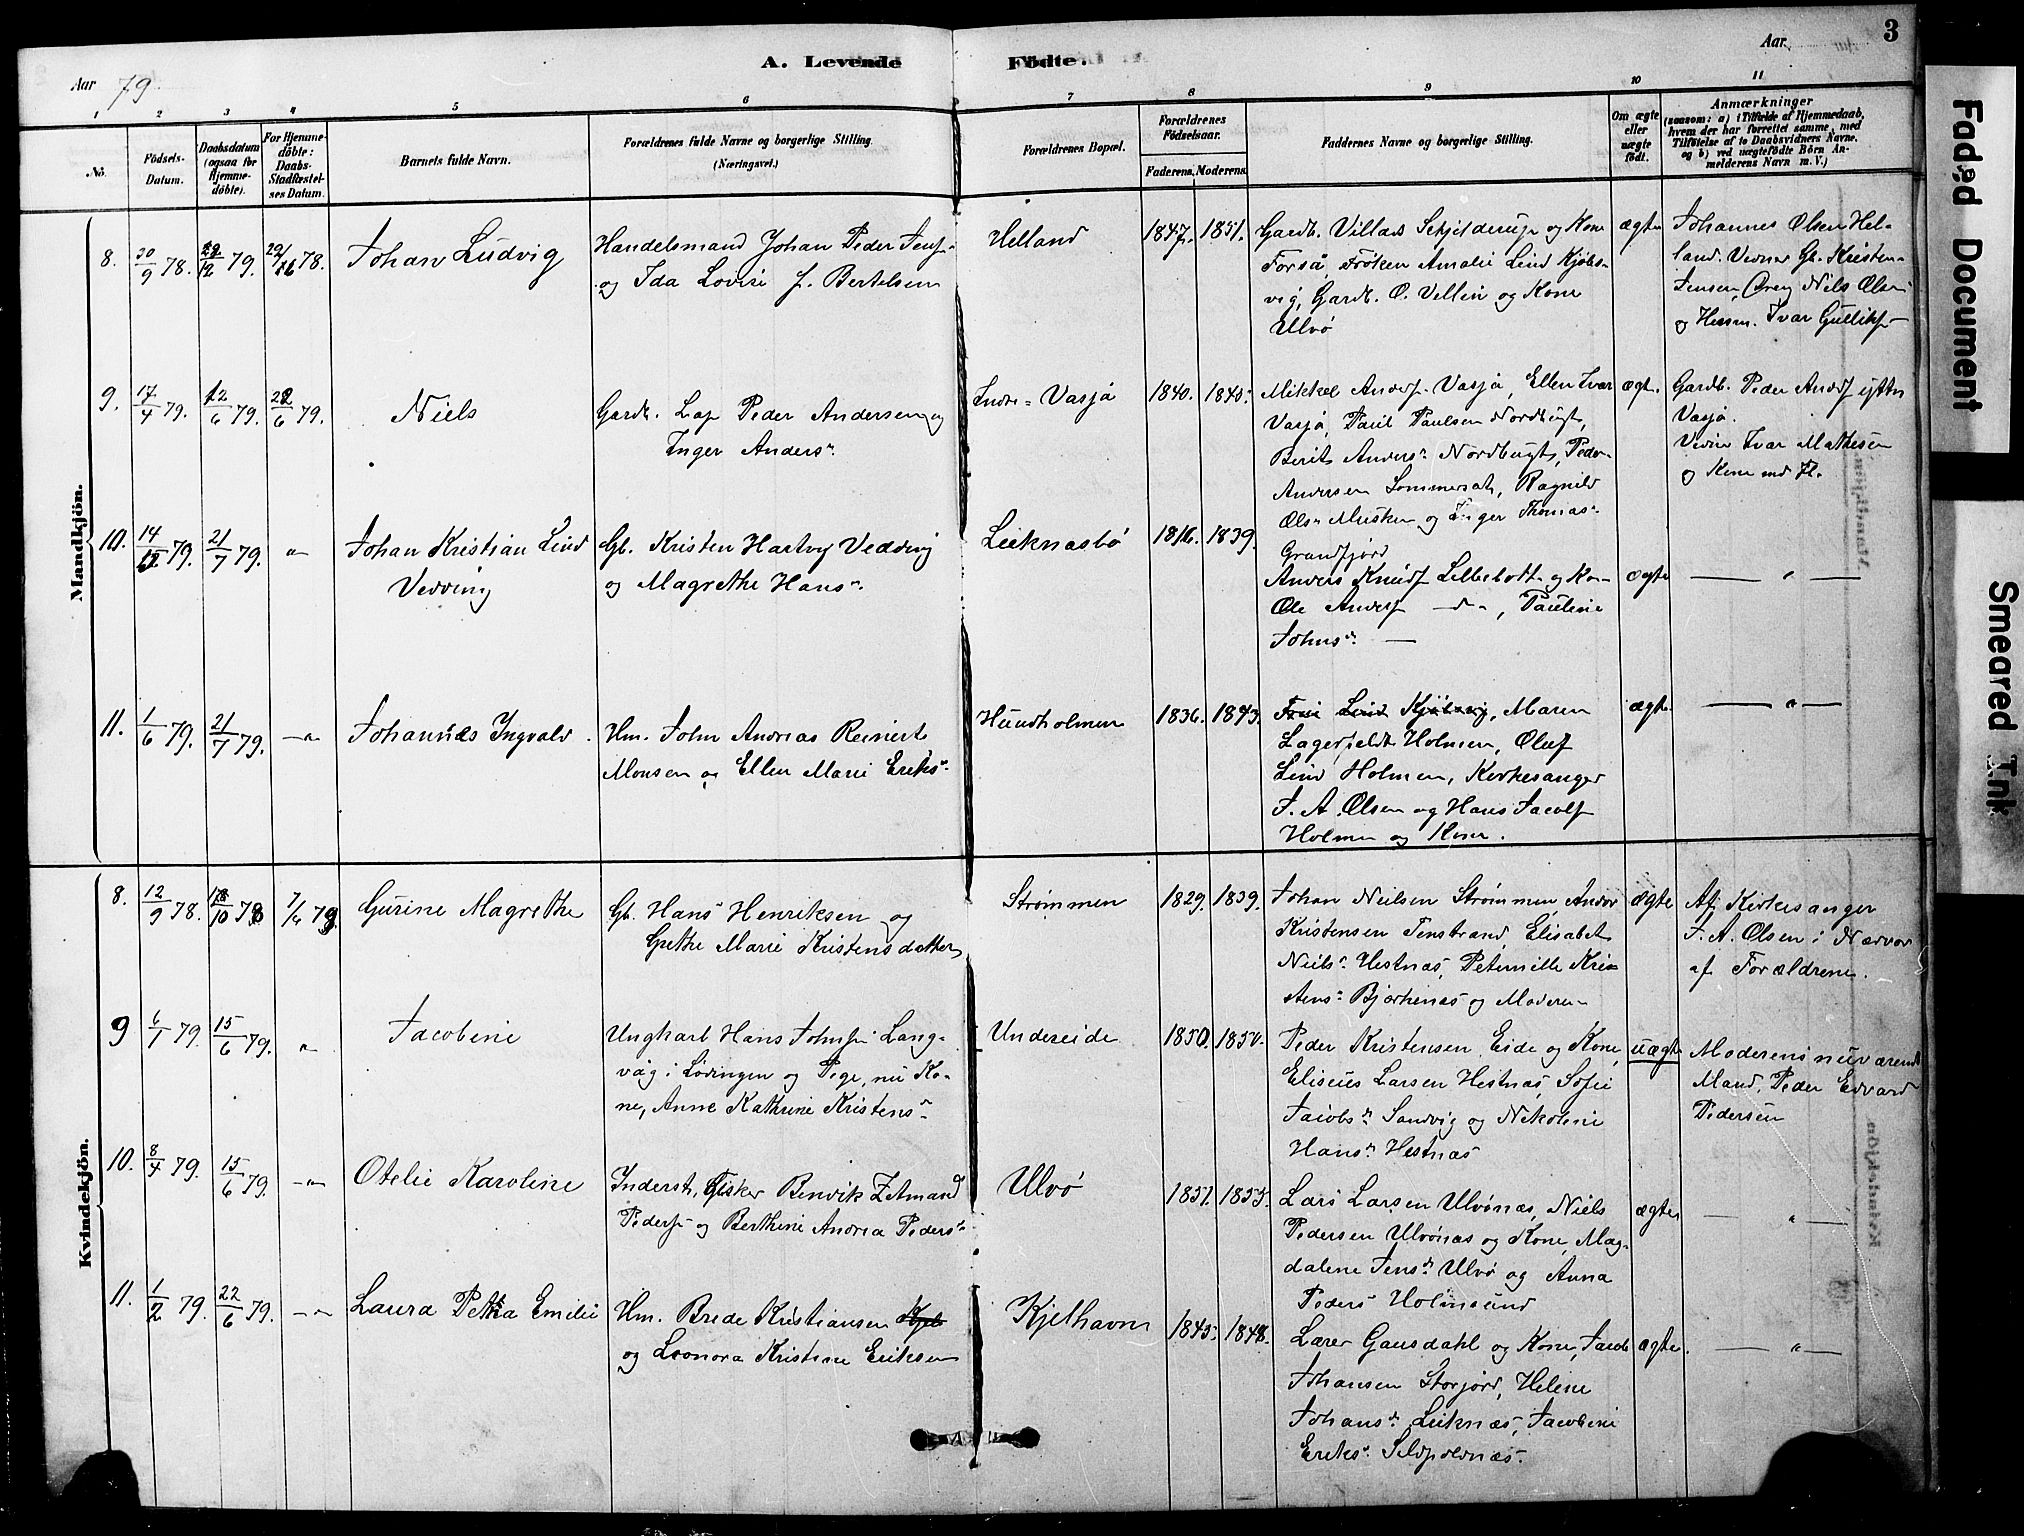 3
Aar 79
A. Levende Fødte.
Aar
1 2 3 4 5 6 7 8 9 10 11
No.
Fødsels-Datum.
Daabsdatum (ogsaa for Hjemmedöbte).
For Hjemmedöbte: Daabs-Stadfæstelses Datum.
Barnets fulde Navn.
Forældrenes fulde Navne og borgerlige Stilling.
(Næringsvei.)
Forældrenes Bopæl.
Forældrenes Fødselsaar.
Faderens. Moderens.
Faddernes Navne og borgerlige Stilling.
Om ægte eller uægte født.
Anmærkninger
(saasom: a) i Tilfælde af Hjemmedaab, hvem der har forrettet samme, med Tilføielse af to Daabsvidners Navne, og b) ved uægtefödte Börn Anmelderens Navn m. V.)
Mandkjön.
8. 30/9 78. 12 79. 78. Johan Ludvig
Handelsmand Johan Peder Jens-
og Ida Lovise f. Bertelsen
Helland 1847. 1851.
Gardb. Villads Schjelderup og Kone
Forså, Frøken Amalie Lind Kjøbs-
vig, Gardb. O. Vellin og Kone
Ulvø
ægte
Johannes Olsen Hel-
land. Vidner Gb. Kristen
Jensen, Niels Olsen
og Husm. Ivar Gulliks-
9. 17/4 79. 12/6 79. 22/6 79. Niels
Gardb. Lap Peder Andersen og
Inger Andersn
Indre- Vasjå 1840. 1840.
Mikkel Anders- Vasjå, Ellen Ivar
Vasjå, Paul Paulsen Nordbugt,
Berit Andersn Nordbugt, Peder
Andersen Sommerset, Ragnild
Olsn Musken og Inger Thomasn
Grandfjord
ægte.
Gardb. Peder Anders ytter
Vasjå.
Vidner Ivar Mathesen
og Kone md Fl.
10. 14 79. 21/7 79. -"- Johan Kristian Lind
Vedving
Gb. Kristen Hartvg Vedving
og Magrethe Hansn
Leiknasbø 1816. 1839.
Anders Knuds Lillebott- og Ko-
Ole Anders -"-, Pauline
Johnsn —
ægte — " —
11. 1/6 79. 21/7 79. -"- Johannes Ingvald.
Hm. John Andreas Reinert
Monsen og Ellen Marie Eriksn
Hundholmen 1836. 1843.
Frøi Lind Kjøbsvig, Maren
Lagerfeldt Holmen, Oluf
Lind Holmen, Kirkesanger
J. A. Olsen og Hans Jacobs
Holmen og Kone.
ægte — " —
Kvindekjön.
8. 12/9 78. 18/10 78 7/4 79. Gurine Magrethe
Gb. Hans Henriksen og
Grethe Marie Kristensdatter
Strømmen 1829. 1839.
Johan Nielsen Strømmen, Andor
Kristensen Tenstrand, Elisabet
Nielsn Hestnæs, Peternille Kris-
stensn Bjørkenæs og Moderen
ægte
Af Kirkesanger
J. A. Olsen i Nærvær
af Forældrene.
9 6/1 79. 15/6 79. " Jacobine
Ungkarl Hans Johns- Lang-
våg i Lødingen og Pige, nu Ko-
ne, Anne Kathrine Kristensn
Undereide 1850. 1850.
Peder Kristensen Eide og Kone,
Eliseus Larsen Hestnæs, Sofie
Jacobsn Sandvig og Nikoline
Hansn Hestnæs
uægte
Moderens nuværend
Mand, Peder Edvard
Pedersen
10. 8/4 79. 15/6 79. -"- Otelie Karoline
Inderst, Fisker Benvik Zetmand
Peders- og Berthine Andrea Pedersn
Ulvø 1851. 1855.
Lars Larsen Ulvønæs, Niels
Pedersen Ulvønæs og Kone, Mag-
dalene Jensn Ulvø og Anna
Peders Holmsund
ægte — " —
11. 1/2 79. 22/6 79. -"- Laura Petra Emilie
Hm. Brede Kristiansen
og Leonora Kristine Eriksen
Kjelhavn 1845. 1848.
Lærer Gausdahl og Kone, Jacob
Johansen Storjord, Helene
Johansn Leiknæs, Jacobine
Eriksn
ægte. — " —
Faded Document
Smeared Ink